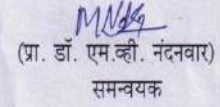 (प्रा. डॉ. एम.व्ही. नंदनवार)
समन्वयक